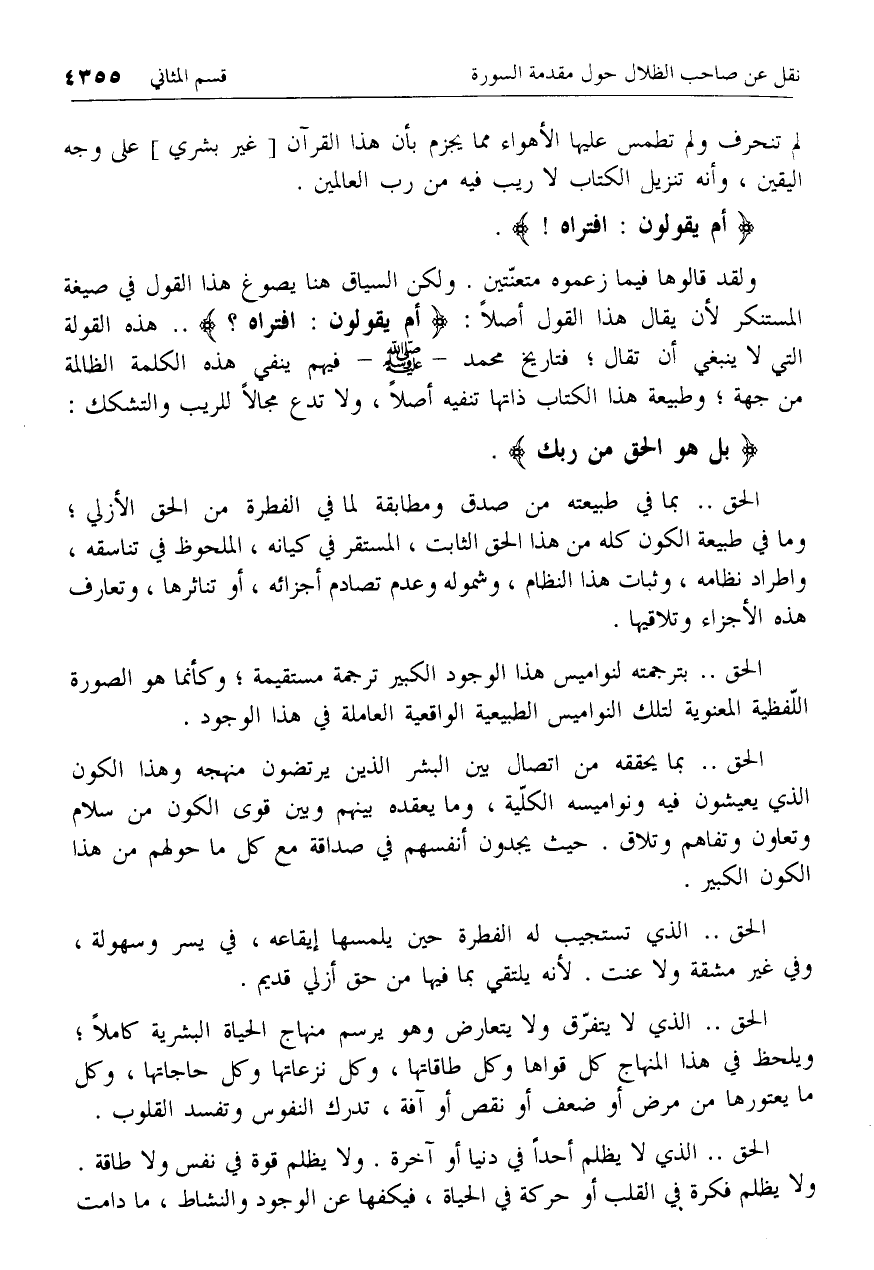 نقل عن صاحب الظلال حول مقدمة السورة قسم المثاني ٤٣٥٥
لم تنحرف ولم تطمس عليها الأهواء مما يجزم بأن هذا القرآن [ غير بشري ] على وجه
اليقين ، وأنه تنزيل الكتاب لا ريب فيه من رب العالمين .
﴿ أم يقولون : افتراه ! ﴾ .
ولقد قالوها فيما زعموه متعنّتين . ولكن السياق هنا يصوغ هذا القول في صيغة
المستنكر لأن يقال هذا القول أصلاً : ﴿ أم يقولون : افتراه ؟ ﴾ .. هذه القولة
التي لا ينبغي أن تقال ؛ فتاريخ محمد – ﷺ – فيهم ينفي هذه الكلمة الظالمة
من جهة ؛ وطبيعة هذا الكتاب ذاتها تنفيه أصلاً ، ولا تدع مجالاً للريب والتشكك :
﴿ بل هو الحق من ربك ﴾ .
الحق .. بما في طبيعته من صدق ومطابقة لما في الفطرة من الحق الأزلي ؛
وما في طبيعة الكون كله من هذا الحق الثابت ، المستقر في كيانه ، الملحوظ في تناسقه ،
واطراد نظامه ، وثبات هذا النظام ، وشموله وعدم تصادم أجزائه ، أو تناثرها ، وتعارف
هذه الأجزاء وتلاقيها .
الحق .. بترجمته لنواميس هذا الوجود الكبير ترجمة مستقيمة ؛ وكأنما هو الصورة
اللّفظية المعنوية لتلك النواميس الطبيعية الواقعية العاملة في هذا الوجود .
الحق .. بما يحققه من اتصال بين البشر الذين يرتضون منهجه وهذا الكون
الذي يعيشون فيه ونواميسه الكلّية ، وما يعقده بينهم وبين قوى الكون من سلام
وتعاون وتفاهم وتلاق . حيث يجدون أنفسهم في صداقة مع كل ما حولهم من هذا
الكون الكبير .
الحق .. الذي تستجيب له الفطرة حين يلمسها إيقاعه ، في يسر وسهولة ،
وفي غير مشقة ولا عنت . لأنه يلتقي بما فيها من حق أزلي قديم .
الحق .. الذي لا يتفرّق ولا يتعارض وهو يرسم منهاج الحياة البشرية كاملاً ؛
ويلحظ في هذا المنهاج كل قواها وكل طاقاتها ، وكل نزعاتها وكل حاجاتها ، وكل
ما يعتورها من مرض أو ضعف أو نقص أو آفة ، تدرك النفوس وتفسد القلوب .
الحق .. الذي لا يظلم أحداً في دنيا أو آخرة . ولا يظلم قوة في نفس ولا طاقة .
ولا يظلم فكرة في القلب أو حركة في الحياة ، فيكفها عن الوجود والنشاط ، ما دامت